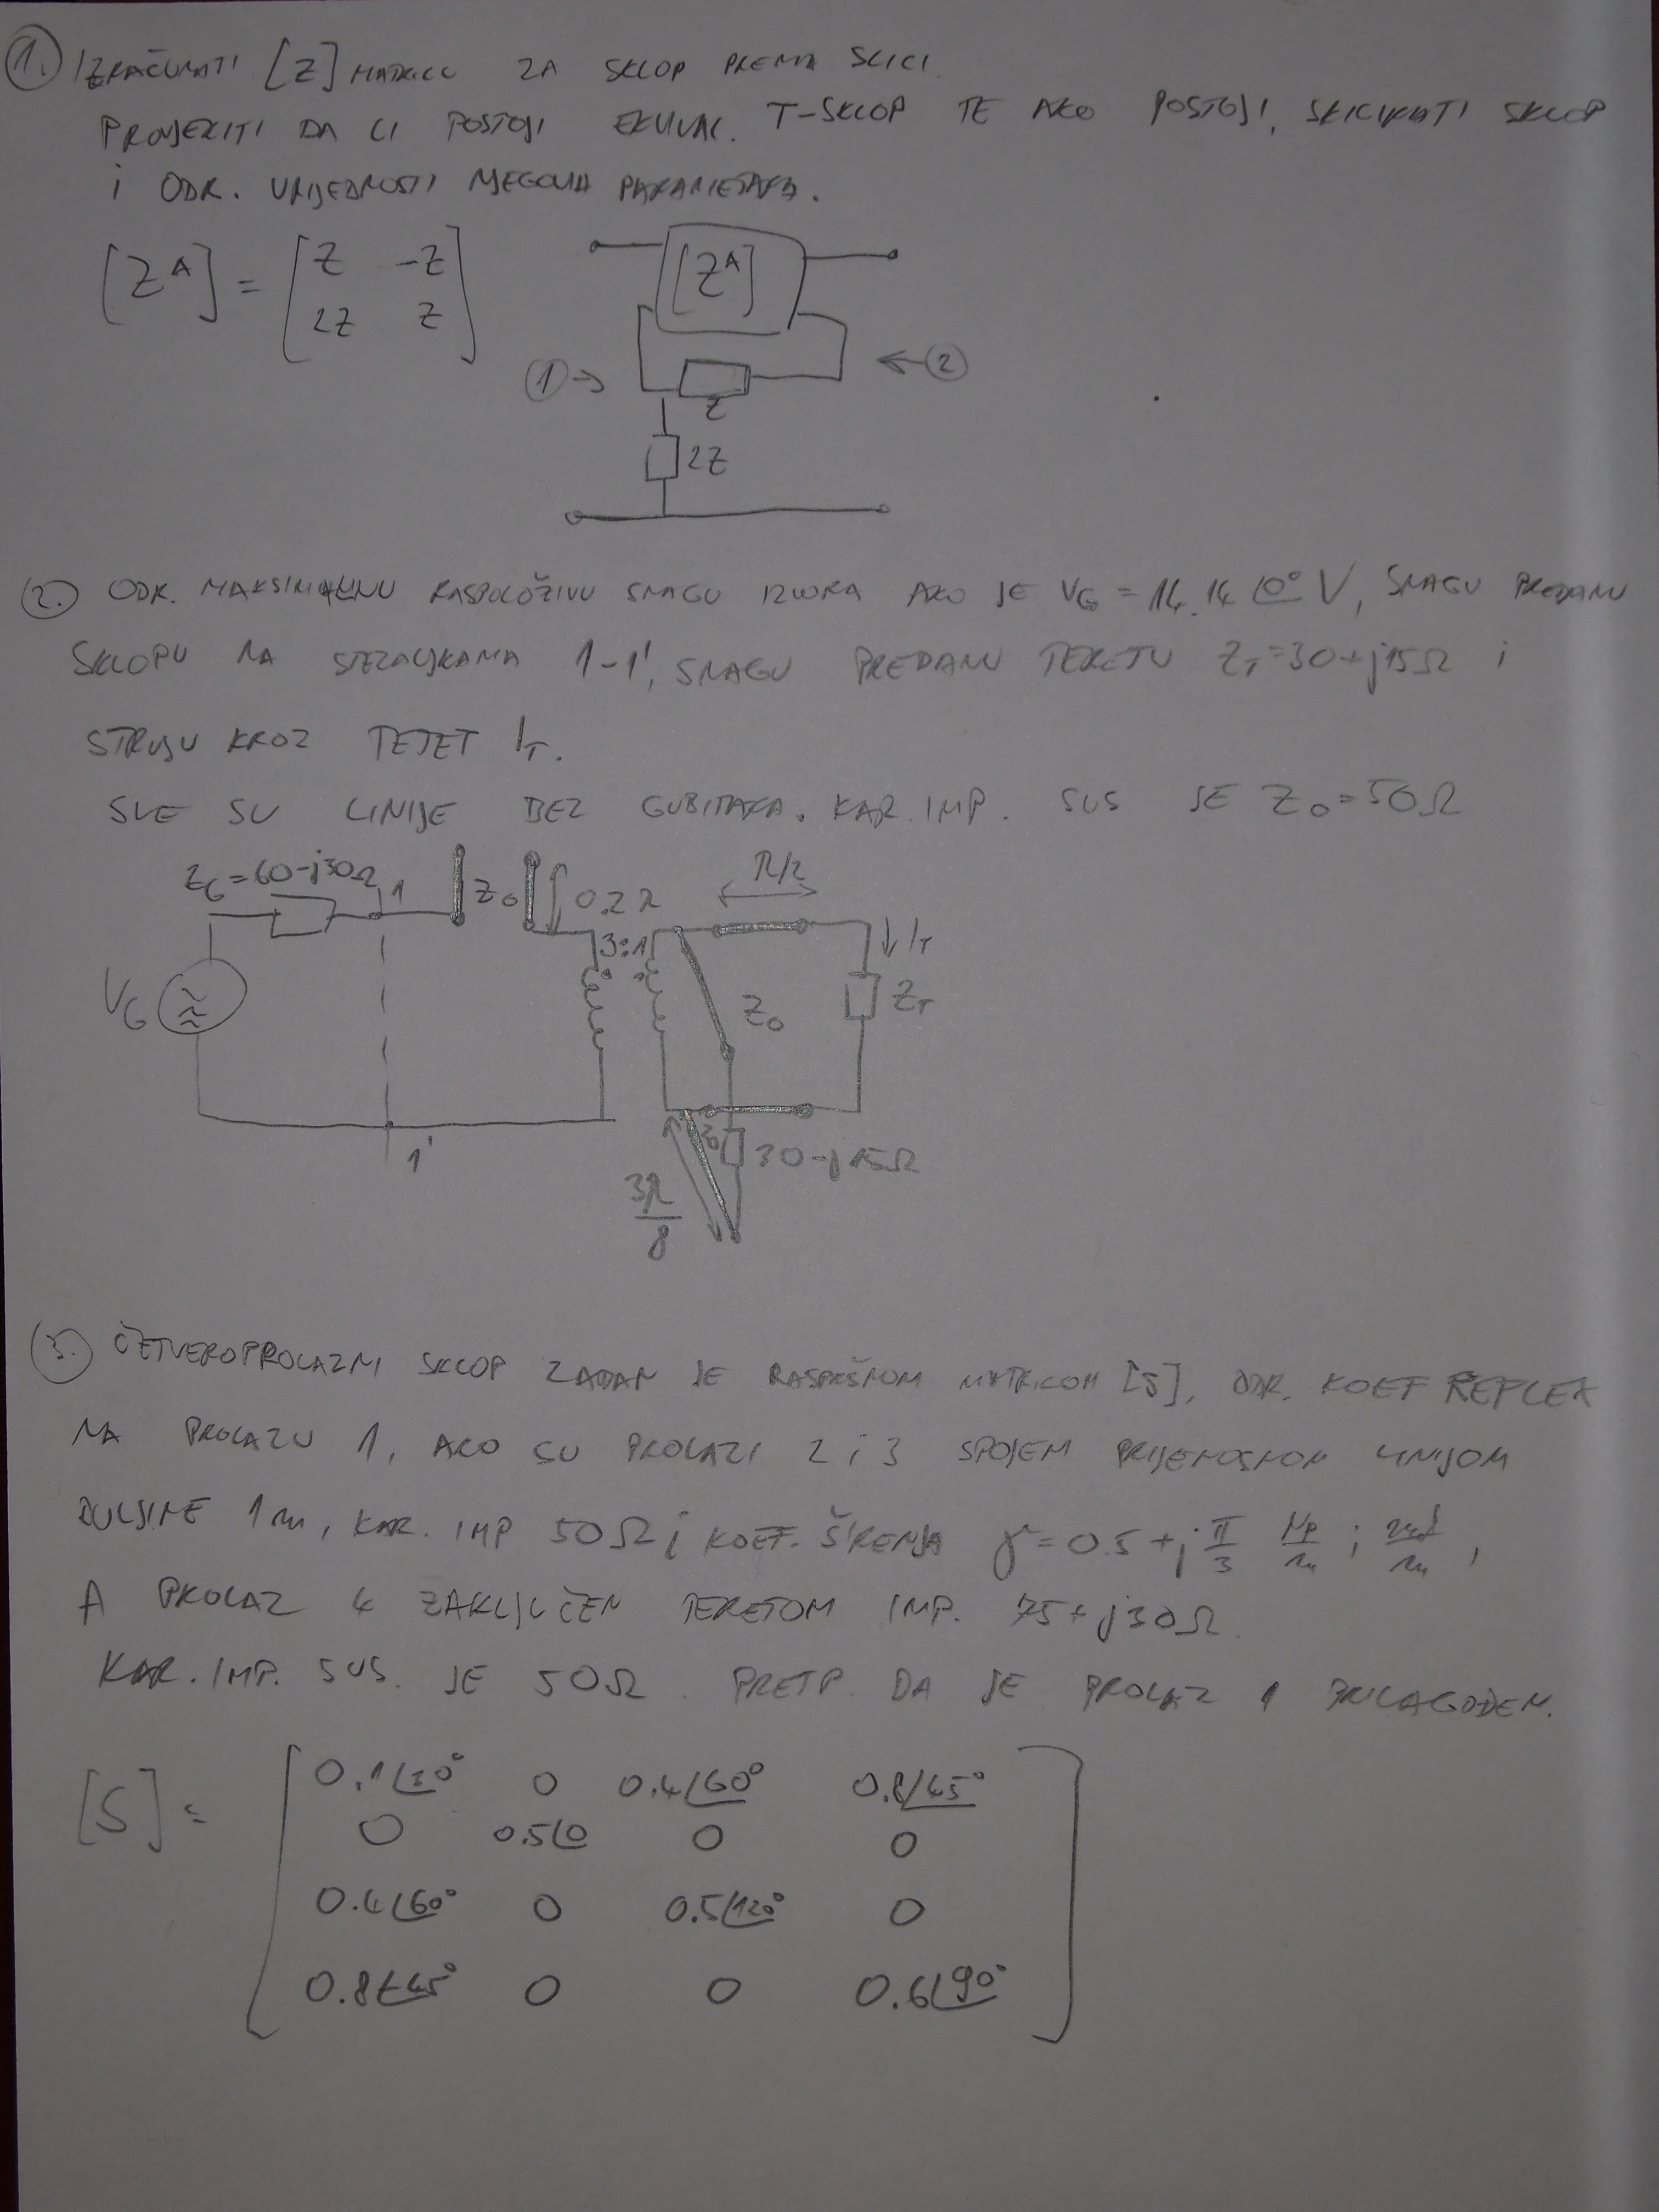 1. IZRAČUNATI [Z] MATRICU ZA SKLOP PREMA SLICI.
PROVJERITI DA LI POSTOJI EKVIVAL. T-SKLOP TE AKO POSTOJI, SKICIRATI SKLOP
i ODR. VRIJEDNOSTI NJEGOVIH PARAMETARA.
[Z^A] = [Z -Z
2Z Z]
[Z^A]
1 →
← 2
Z
2Z
2. ODR. MAKSIMALNU RASPOLOŽIVU SNAGU IZVORA AKO JE VG = 14.14 ∠0° V, SNAGU PREDANU
SKLOPU NA STEZALJKAMA 1-1', SNAGU PREDANU TERETU ZT=30+j15Ω i
STRUJU KROZ TERET IT.
SVE SU LINIJE BEZ GUBITAKA. KAR. IMP. SUS JE Z0=50Ω
ZG=60-j30Ω 1 Z0 0.2λ λ/2
3:1 IT
VG Z0 ZT
1' Z0 30-j15Ω
3λ/8
3. ČETVEROPROLAZNI SKLOP ZADAN JE RASPRŠNOM MATRICOM [S], ODR. KOEF REFLEX
NA PROLAZU 1, AKO SU PROLAZI 2 i 3 SPOJENI PRIJENOSNOM LINIJOM
DULJINE 1m, KAR. IMP 50Ω i KOEF. ŠIRENJA γ=0.5+j π/3 Np/m ; rad/m ,
A PROLAZ 4 ZAKLJUČEN TERETOM IMP. 75+j30Ω.
KAR. IMP. SUS. JE 50Ω. PRETP. DA JE PROLAZ 1 PRILAGOĐEN.
[S] = [0.1∠30° 0 0.4∠60° 0.8∠45°
0 0.5∠0 0 0
0.4∠60° 0 0.5∠120° 0
0.8∠45° 0 0 0.6∠90°]